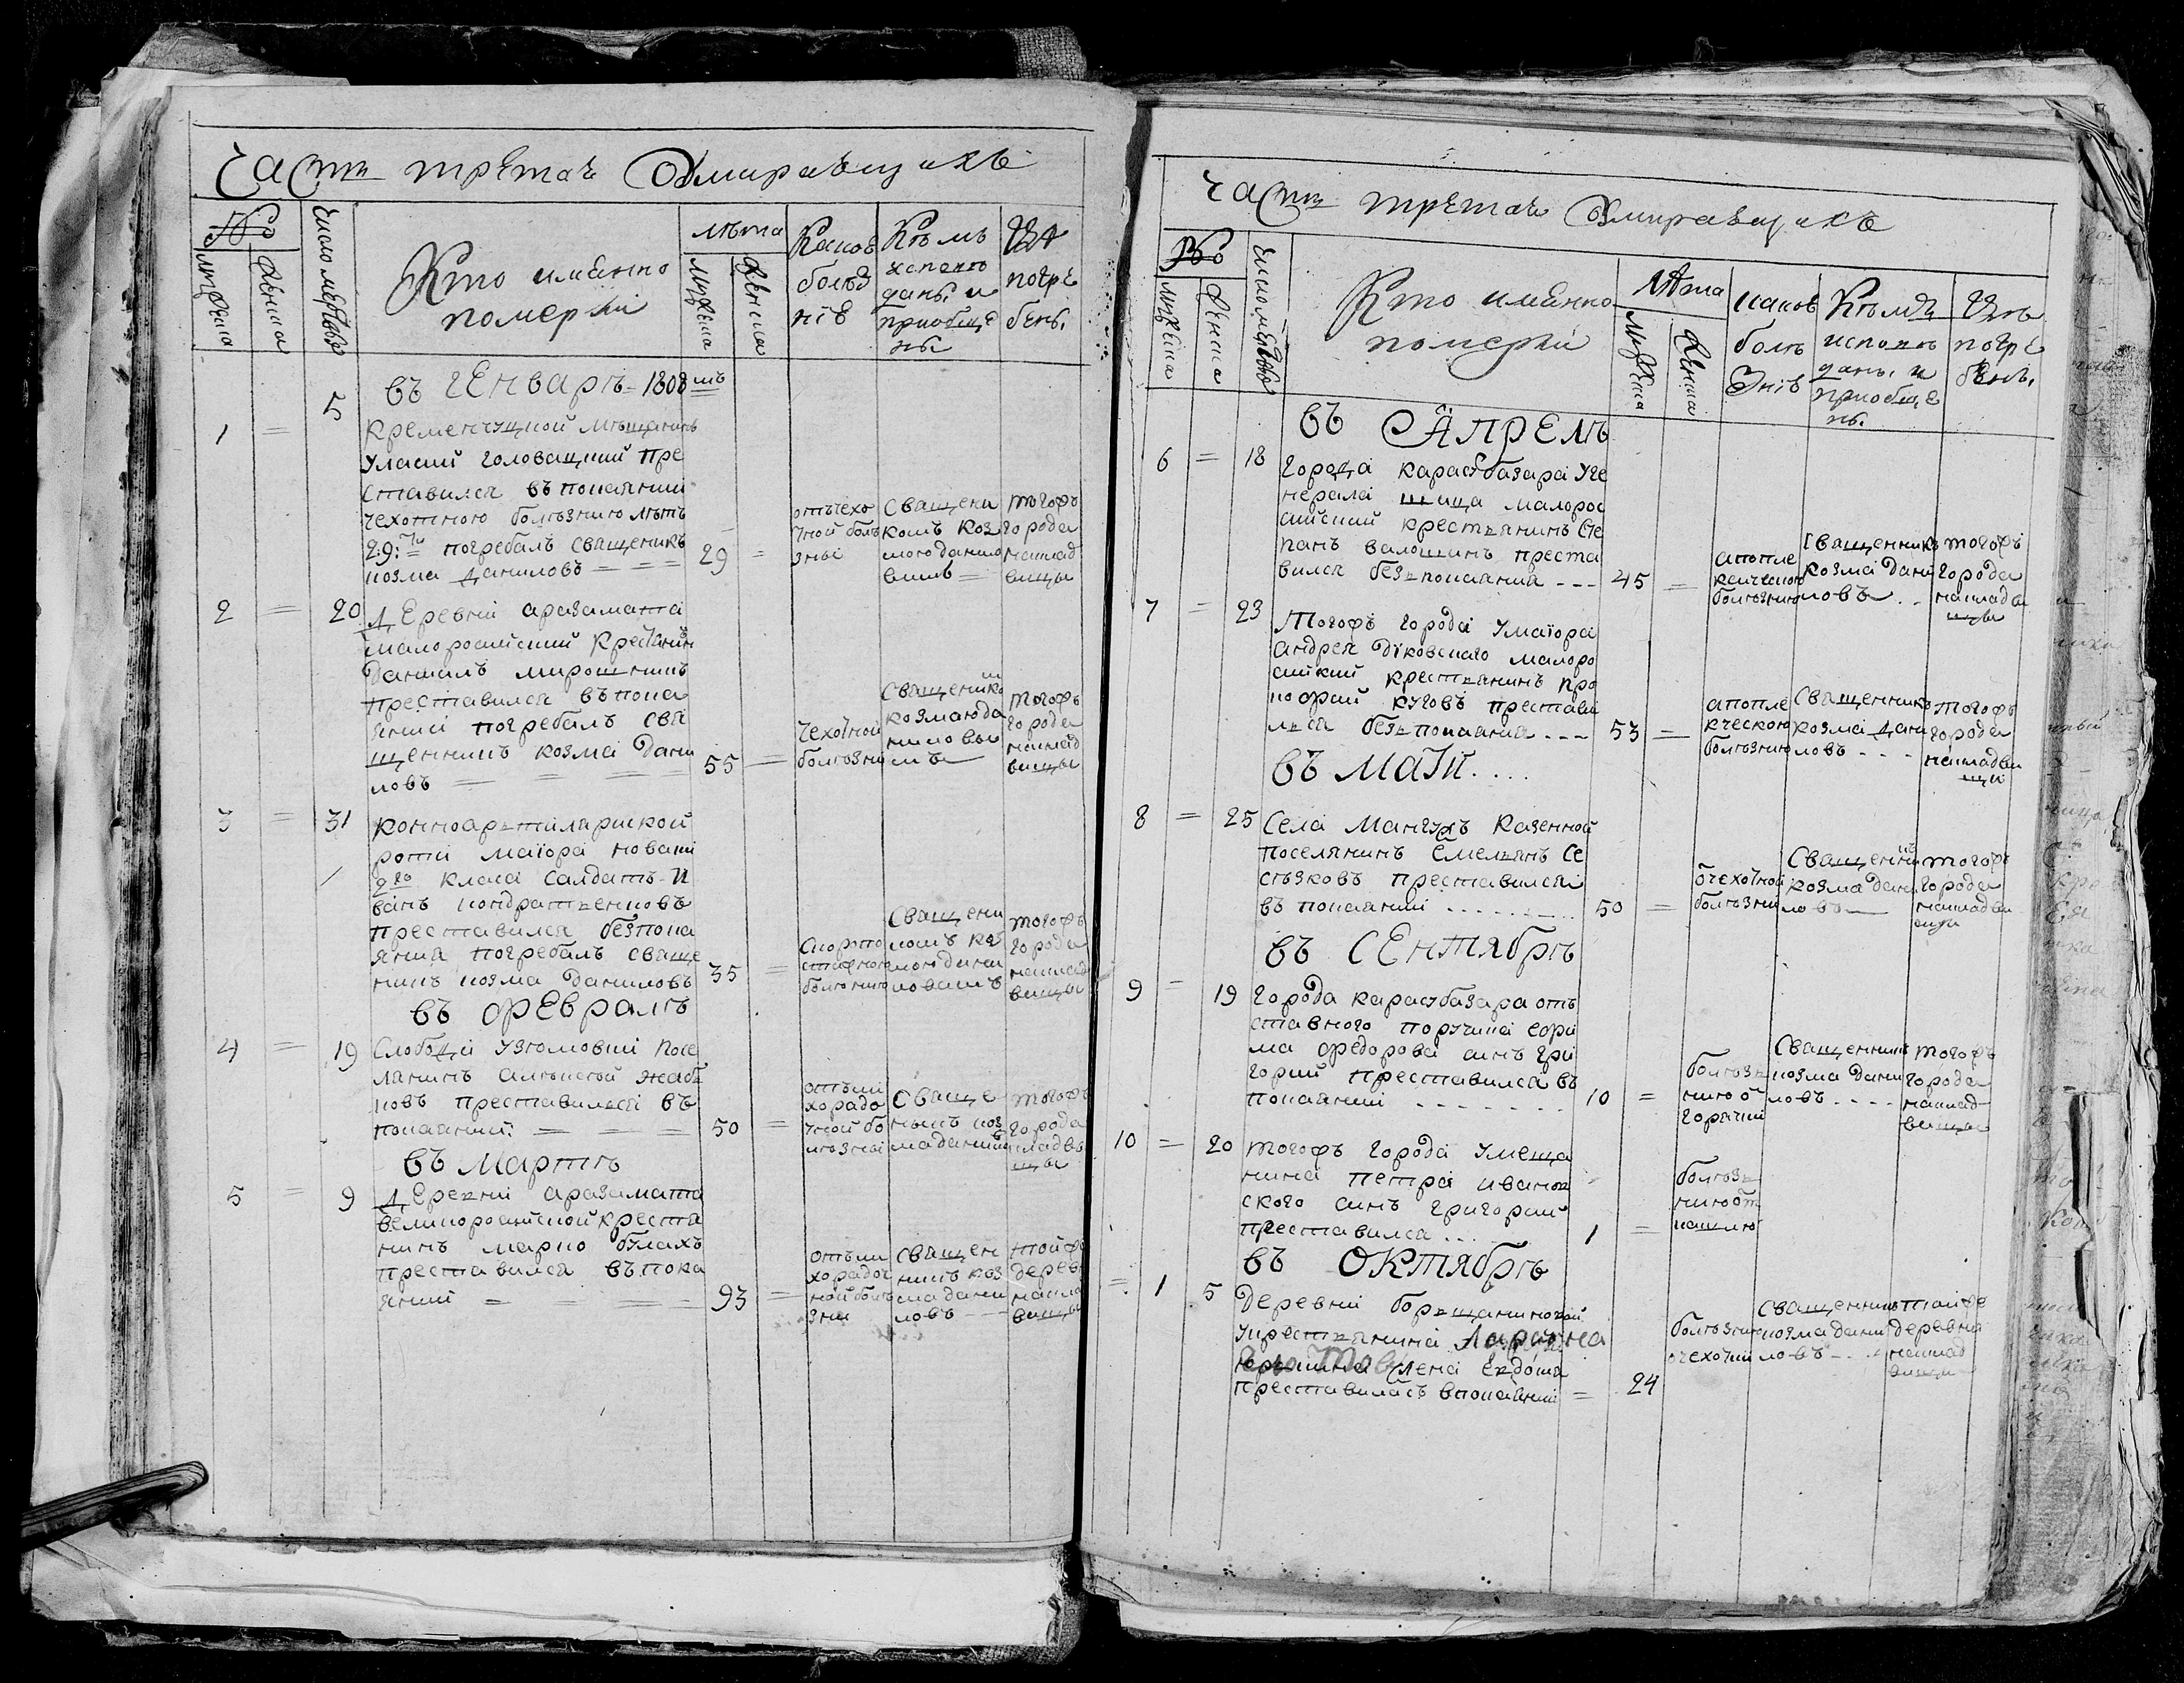 Часть третая О умирающихъ
№
мужеска
женска
Число мертвых
Кто имянно
померли
лѣта
мужеска
женска
Какою
болѣз
нiе
Кѣмъ
исповѣ
даны и
приобще
ны
Гдѣ
погре
бены
въ Генварѣ 1808
1 = 5
Кременчуцкой мещанинъ
Уласий головацкий пре
ставился въ покаянии
чехотною болѣзнию лѣтъ
29: погребалъ священикъ
козма даниловъ = = =
29 =
отъ чехо
тной болѣ
зны
Священи
комъ Коз
мою данило
вимъ =
тогожъ
города
на клад
вищы
2 = 20
Деревни аразаманта
малоросийский Крестянин
Даниилъ мирошникъ
преставился въ пока
янии погребалъ свя
щенникъ козма дани
ловъ = = =
55 =
чехотной
болѣзни
Священико
козмою да
ниловы
мъ
тогожъ
города
на клад
вищы
3 = 31
конноартилариской
роти маиора новаки
9го класа салдатъ И
ванъ кондратенковъ
преставился без пока
яния погребалъ свяще
никъ козма даниловъ
35 =
Скоропо
стижною
болѣзнию
Священи
комъ коз
мою дани
ловимъ
тогожъ
города
на клад
вищы
въ Февралѣ
4 = 19
Слободи Узтомовки посе
лянинъ алексѣй жабѣ
ковъ преставился въ
покаянии: = = =
50 =
отъ ли
хорадо
чной бо
лѣзни
Свяще
никъ коз
ма данилов
тогожъ
города
на кладви
щы
въ Мартѣ
5 = 9
Деревни аразамата
великоросийской крестя
нинъ марко булахъ
преставился въ пока
янии = =
93 =
отъ ли
хорадоч
ной болѣ
зни
Священ
никъ коз
ма дани
ловъ
тойжъ
дерев
на кла
вищы
Часть третая О умирающихъ
№
мужеска
женска
Число мертвых
Кто имянно
померли
лѣта
мужеска
женска
какою
болѣ
знiе
Кѣмъ
исповѣ
даны и
приобще
ны
Гдѣ
погре
бены
въ Апрелѣ
6 = 18
города карасубазара у ге
нерала шица малорос
сийский крестьянинъ Сте
панъ валошинъ преста
вился безъ покаяния - - -
45 =
апопле
кическою
болѣзнию
Священникъ
козма дани
ловъ . -
тогожъ
города
на кладви
щы
7 = 23
Тогожъ города у маiора
андрея дiковскаго малоро
сийкий крестьянинъ про
кофий куговъ престави
лься безъ покаяния - - -
53 =
апопле
кческою
болѣзнию
Священникъ
козма дани
ловъ - - -
тогожъ
города
на кладви
щи
въ Маiи . . . .
8 = 25
Села Мангушъ казенной
поселянинъ Емельянъ Се
лѣзковъ преставился
въ покаянии . . . . . . .
50 =
о чехотной
болѣзни
Священникъ
козма дани
ловъ
тогожъ
города
на кладви
щы
въ Сентябрѣ
9 = 19
города карасубазара отъ
ставного поручика ефи
ма федорова синъ гри
горий преставился въ
покаянии - - - - - - - -
10 =
болѣзъ
нию о
горячки
Священникъ
козма дани
ловъ . . . .
тогожъ
города
на клад
вищы
10 = 20
тогожъ города у меща
нина петра иванов
ского синъ григорий
преставился . . . .
1 =
болѣзъ
нию от
кашлю
въ Октябрѣ
= 1 5
Деревни борещаниновой
у крестьянина
жена Евдокия
преставилась в покаянии =
24
болѣзнию
о чехотки
Священникъ
козма дани
ловъ - . .
тойже
деревни
на клад
вищи